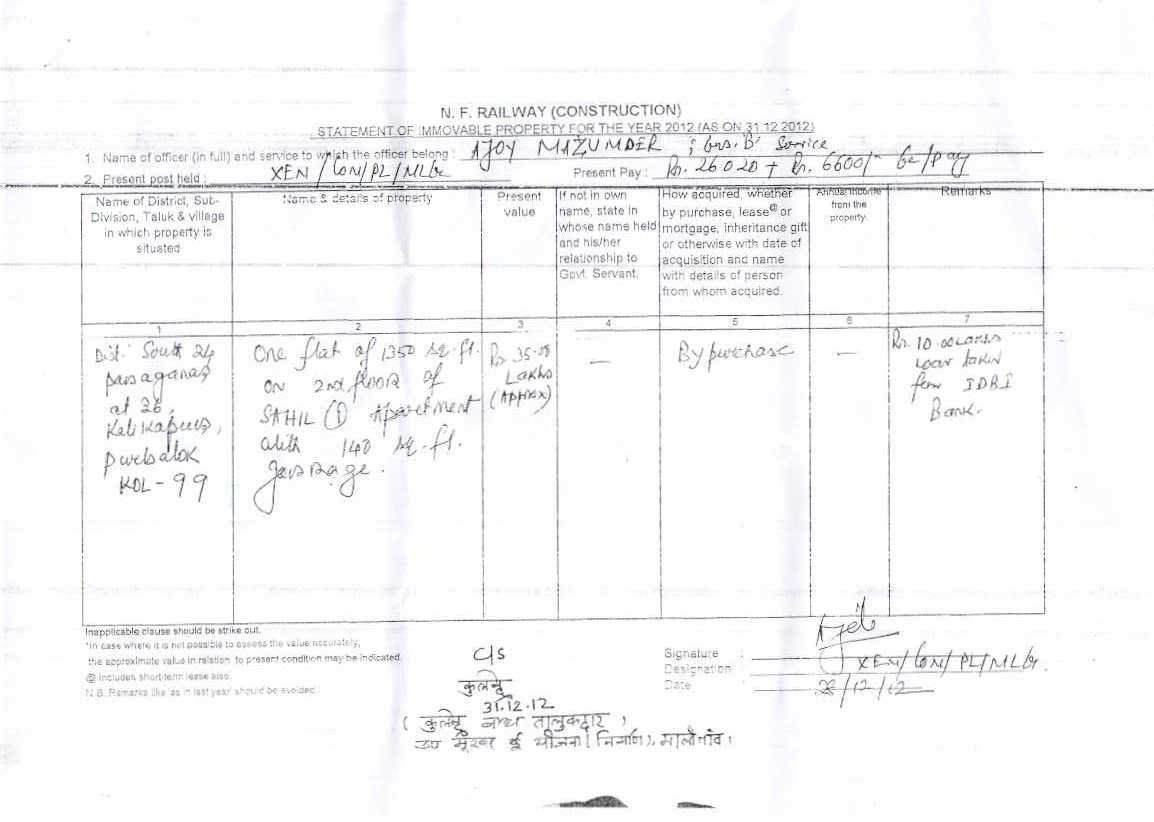 N. F. RAILWAY (CONSTRUCTION)
STATEMENT OF IMMOVABLE PROPERTY FOR THE YEAR 2012 (AS ON 31.12.2012)
1. Name of officer (in full) and service to which the officer belong : AJOY MAZUMDER ; 'B' Service
2. Present post held : XEN/CON/PL/MLG Present Pay : Rs. 26020 + Rs. 6600/-
Name of District, Sub-
Division, Taluk & village
in which property is
situated
Name & details of property
Present
value
If not in own
name, state in
whose name held
and his/her
relationship to
Govt. Servant.
How acquired, whether
by purchase, lease@ or
mortgage, inheritance gift
or otherwise with date of
acquisition and name
with details of person
from whom acquired.
Annual income
from the
property.
Remarks
1 2 3 4 5 6 7
Dist: South 24
paraganas
at 26,
Kalikapur,
purbalok
KOL - 99
One flat of 1350 sq.ft.
on 2nd floor of
SAHIL (I) Apartment
with 140 sq.ft.
garrage.
Rs 35.00
Lakhs
(Approx)
—
By purchase
—
Rs. 10.00 Lakhs
loan taken
from IDBI
Bank.
Inapplicable clause should be strike out.
*In case where it is not possible to assess the value accurately,
the approximate value in relation to present condition may be indicated.
@ Includes short-term lease also.
N.B. Remarks like 'as in last year' should be avoided.
C/S
31.12.12
तालुकदार )
उप योजना (निर्माण), मालीगांव।
Signature :
Designation : XEN/CON/PL/MLG.
Date : /12/12